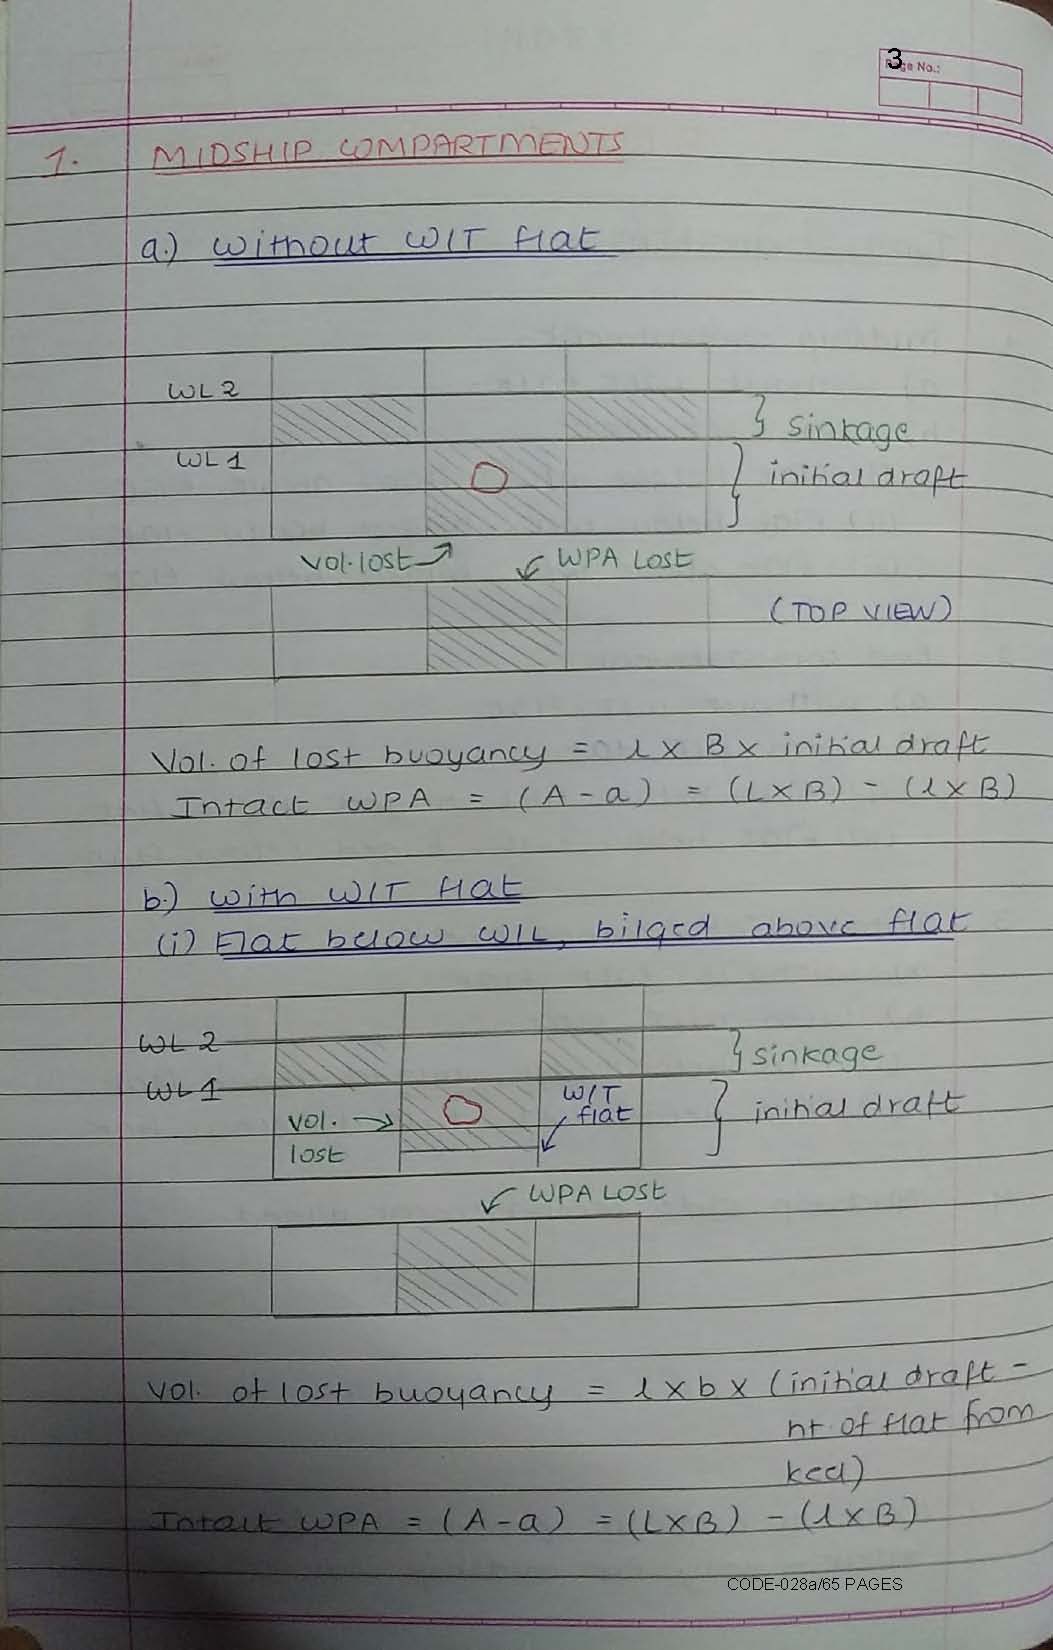 3
Page No.:
1. MIDSHIP COMPARTMENTS
a.) without W/T flat
WL 2
sinkage
WL 1
initial draft
vol. lost
WPA LOST
(TOP VIEW)
Vol. of lost buoyancy = l x B x initial draft
Intact WPA = (A - a) = (L x B) - (l x B)
b.) with W/T flat
(i) Flat below W/L, bilged above flat
WL 2
sinkage
WL 1
W/T
flat
initial draft
vol.
lost
WPA LOST
Vol. of lost buoyancy = l x b x (initial draft -
ht. of flat from
keel)
Intact WPA = (A - a) = (L x B) - (l x B)
CODE-028a/65 PAGES